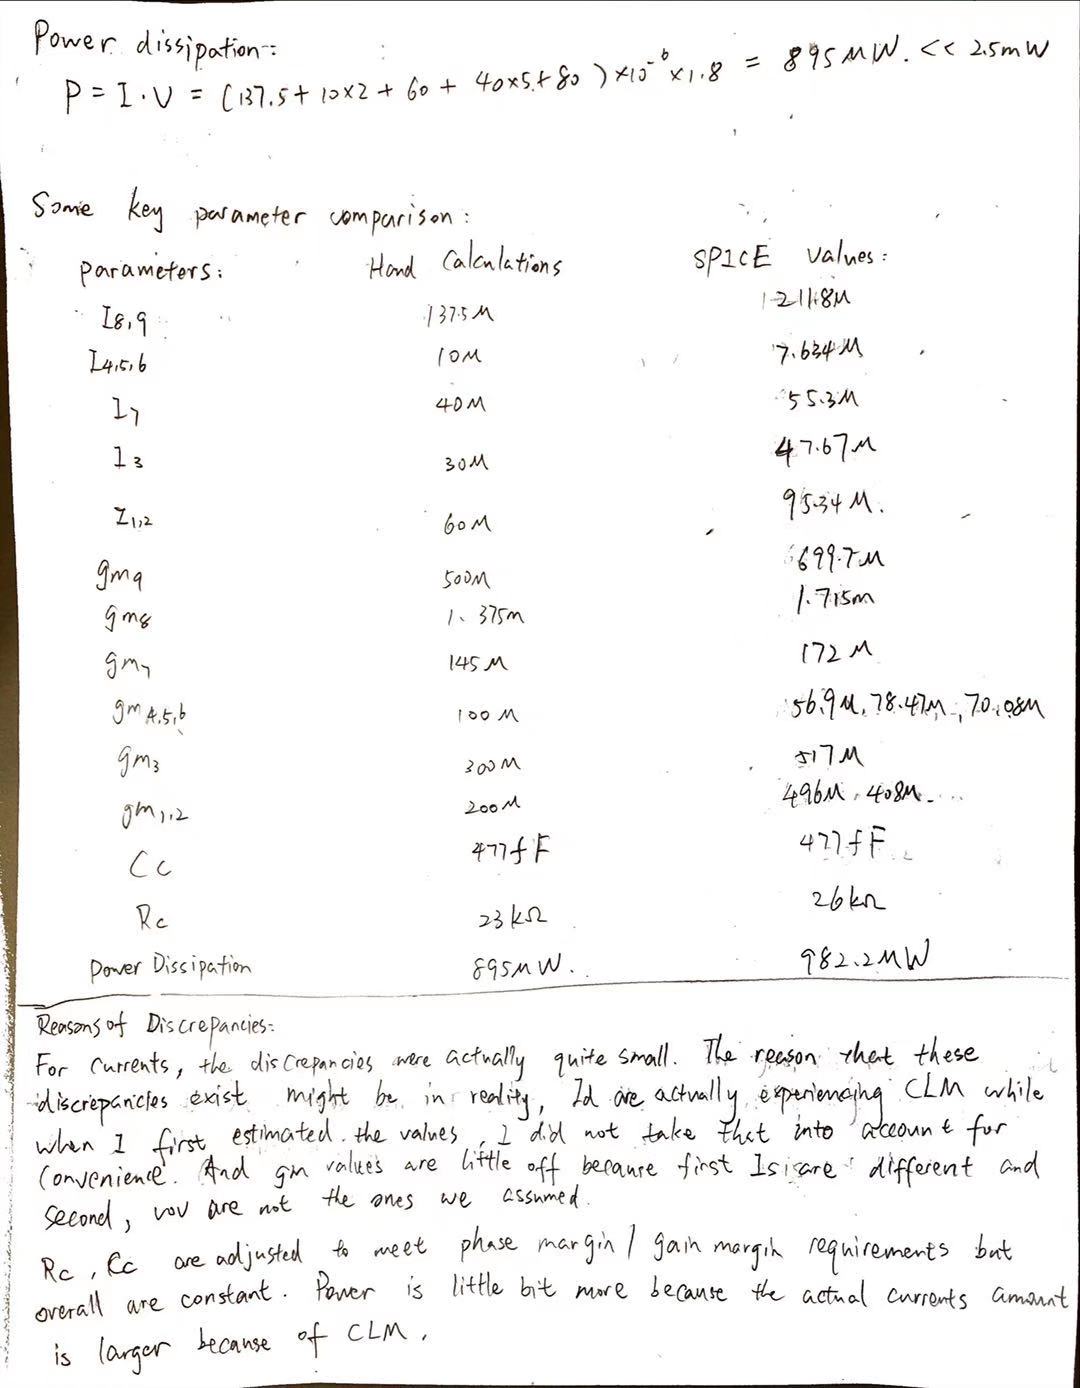 Power dissipation:
P = I·V = (137.5 + 10×2 + 60 + 40×5 + 80) ×10⁻⁶ ×1.8 = 895MW. << 2.5mW
Some key parameter comparison:
Parameters: Hand Calculations SPICE values:
I8,9 137.5M 121.8M
I4,5,6 10M 7.634M
I7 40M 55.3M
I3 30M 47.67M
I1,2 60M 95.34M.
gm9 500M 699.7M
gm8 1.375m 1.715m
gm7 145M 172M
gm4,5,6 100M 56.9M, 78.47M, 70.08M
gm3 300M 517M
gm1,2 200M 496M, 408M
Cc 477fF 477fF
Rc 23kΩ 26kΩ
Power Dissipation 895MW. 982.2MW
Reasons of Discrepancies:
For currents, the discrepancies were actually quite small. The reason that these
discrepancies exist might be in reality, Id are actually experiencing CLM while
when I first estimated the values, I did not take that into account for
convenience. And gm values are little off because first Is are different and
second, vov are not the ones we assumed.
Rc, Cc are adjusted to meet phase margin/gain margin requirements but
overall are constant. Power is little bit more because the actual currents amount
is larger because of CLM.